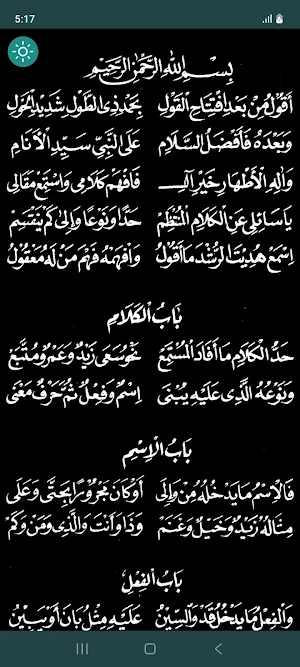 5:17
بِسْمِ اللهِ الرَّحْمٰنِ الرَّحِيْمِ
أَقُوْلُ مِنْ بَعْدِ افْتِتَاحِ الْقَوْلِ بِحَمْدِ ذِى الطَّوْلِ شَدِيْدِ الْحَوْلِ
وَبَعْدَهُ فَأَفْضَلُ السَّلَامِ عَلَى النَّبِيِّ سَيِّدِ الْأَنَامِ
وَاٰلِهِ الْأَطْهَارِ خَيْرِ اٰلِ فَافْهَمْ كَلَامِى وَاسْتَمِعْ مَقَالِى
يَاسَائِلِى عَنِ الْكَلَامِ الْمُنْتَظِمْ حَدًّا وَنَوْعًا وَاِلَى كَمْ يَنْقَسِمْ
اِسْمَعْ هُدِيْتَ الرُّشْدَ مَا أَقُوْلُ وَافْهَمْهُ فَهْمَ مَنْ لَهُ مَعْقُوْلُ
بَابُ الْكَلَامِ
حَدُّ الْكَلَامِ مَا أَفَادَ الْمُسْتَمِعْ نَحْوُ سَعَى زَيْدٌ وَعَمْرٌو مُتَّبِعْ
وَنَوْعُهُ الَّذِى عَلَيْهِ يُبْنَى اِسْمٌ وَفِعْلٌ ثُمَّ حَرْفُ مَعْنَى
بَابُ الْاِسْمِ
فَالْاِسْمُ مَا يَدْخُلُهُ مِنْ وَاِلَى أَوْ كَانَ مَجْرُوْرًا بِحَتَّى وَعَلَى
مِثَالُهُ زَيْدٌ وَخَيْلٌ وَغَنَمْ وَذَا وَأَنْتَ وَالَّذِى وَمَنْ وَكَمْ
بَابُ الْفِعْلِ
وَالْفِعْلُ مَا يَدْخُلُ قَدْ وَالسِّيْنُ عَلَيْهِ مِثْلُ بَانَ أَوْ يَبِيْنُ